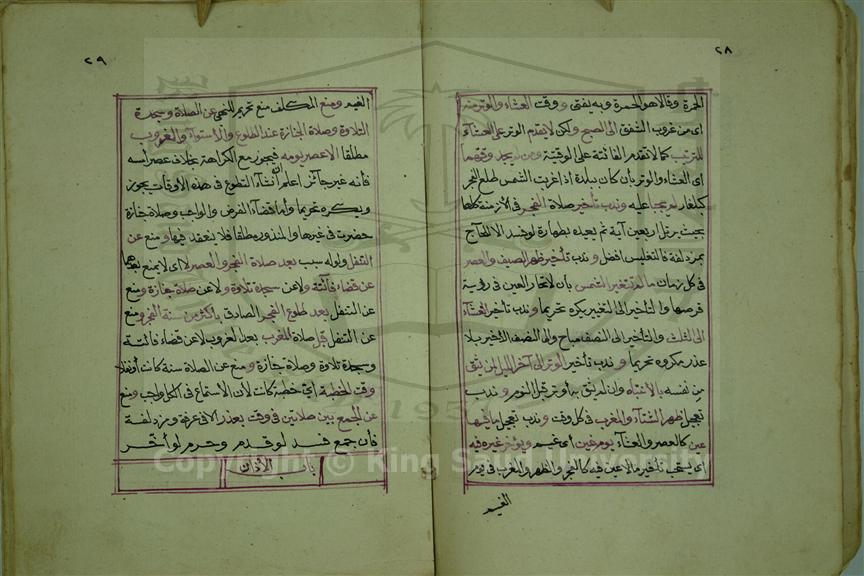 ٢٨
الحمرة وقالا هو الحمرة وبه يفتى ووقت العشاء والوتر منه
اى من غروب الشفق الى الصبح ولكن لا يقدم الوتر على العشاء
للترتيب كما لا تقدم الفائتة على الوقتية ومن لم يجد وقتهما
اى العشاء والوتر بان كان ببلدة اذا غربت الشمس طلع الفجر
كبلغار لم يجبا عليه وندب تأخير صلاة الفجر فى الازمنة كلها
بحيث يرتل اربعين آية ثم يعيده بطهارة لو فسد الا للحاج
بمزدلفة فالتغليس افضل وندب تأخير ظهر الصيف والعصر
فى كل زمان ما لم تتغير الشمس بان لا تحار العين فى رؤية
قرصها والتأخير الى التغير يكره تحريما وندب تأخير العشاء
الى الثلث والتأخير الى النصف مباح والى النصف الاخير بلا
عذر مكروه تحريما وندب تأخير الوتر الى آخر الليل لمن يثق
من نفسه بالانتباه وان لم يثق به أوتر قبل النوم وندب
تعجيل ظهر الشتاء والمغرب فى كل وقت وندب تعجيل ما فيها
عين كالعصر والعشاء يوم غين أى غيم ويؤخر غيره فيه
اى يستحب تأخير ما لا عين فيه كالفجر والظهر والمغرب فى يوم
الغيم
٢٩
الغيم ومنع المكلف منع تحريم للنهى عن الصلاة وسجدة
التلاوة وصلاة الجنازة عند الطلوع والاستواء والغروب
مطلقا الا عصر يومه فيجوز مع الكراهة بخلاف عصر امسه
فأنه غير جائز اعلم أن انشاء التطوع فى هذه الاوقات يجوز
ويكره تحريما وأما قضاء الفرض والواجب وصلاة جنازة
حضرت فى غيرها والمنذورة مطلقا فلا ينعقد فيها ومنع عن
التنفل ولو له سبب بعد صلاة الفجر والعصر لا اى لا يمنع بعدهما
عن قضاء فائتة ولا عن سجدة تلاوة ولا عن صلاة جنازة ومنع
عن التنفل بعد طلوع الفجر الصادق بأكثر من سنة الفجر ومنع
عن التنفل قبل صلاة المغرب بعد الغروب لا عن قضاء فائتة
وسجدة تلاوة وصلاة جنازة ومنع عن الصلاة سنة كانت أو نفلا
وقت الخطبة اى خطبة كانت لأن الاستماع فى الكل واجب ومنع
عن الجمع بين صلاتين فى وقت بعذر الا فى عرفة ومزدلفة
فأن جمع فسد لو قدم وحرم لو أخر
باب الأذان
Copyright © King Saud University